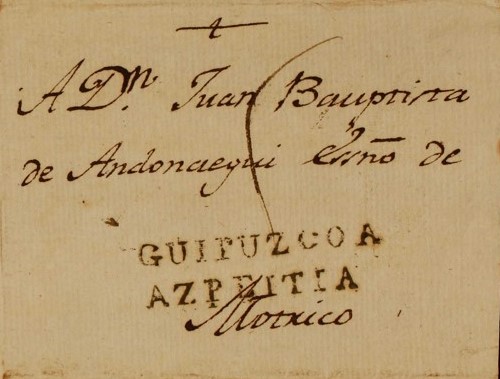 A Dn. Juan Bauptista
de Andonaegui Essño de
GUIPUZCOA
AZPEITIA
Motrico